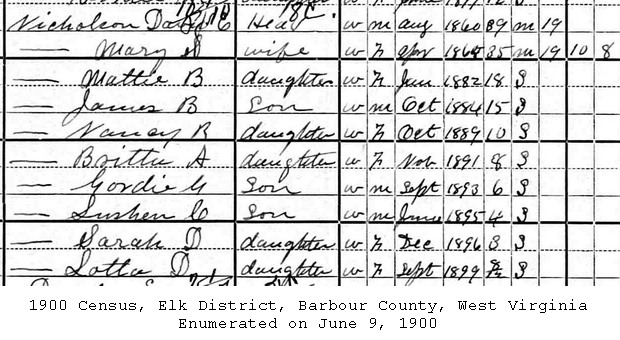 Nicholson David E Head w m aug 1860 39 m 19
— Mary S wife w F apr 1865 35 m 19 10 8
— Mattie B daughter w F Jan 1882 18 S
— James B Son w m Oct 1884 15 S
— Nancy R daughter w F Oct 1889 10 S
— Brittie A daughter w F Nov 1891 8 S
— Gordie G Son w m Sept 1893 6 S
— Son w m June 1895 4 S
— Sarah D daughter w F Dec 1896 3 S
— Lotta D daughter w F Sept 1899 S
1900 Census, Elk District, Barbour County, West Virginia
Enumerated on June 9, 1900